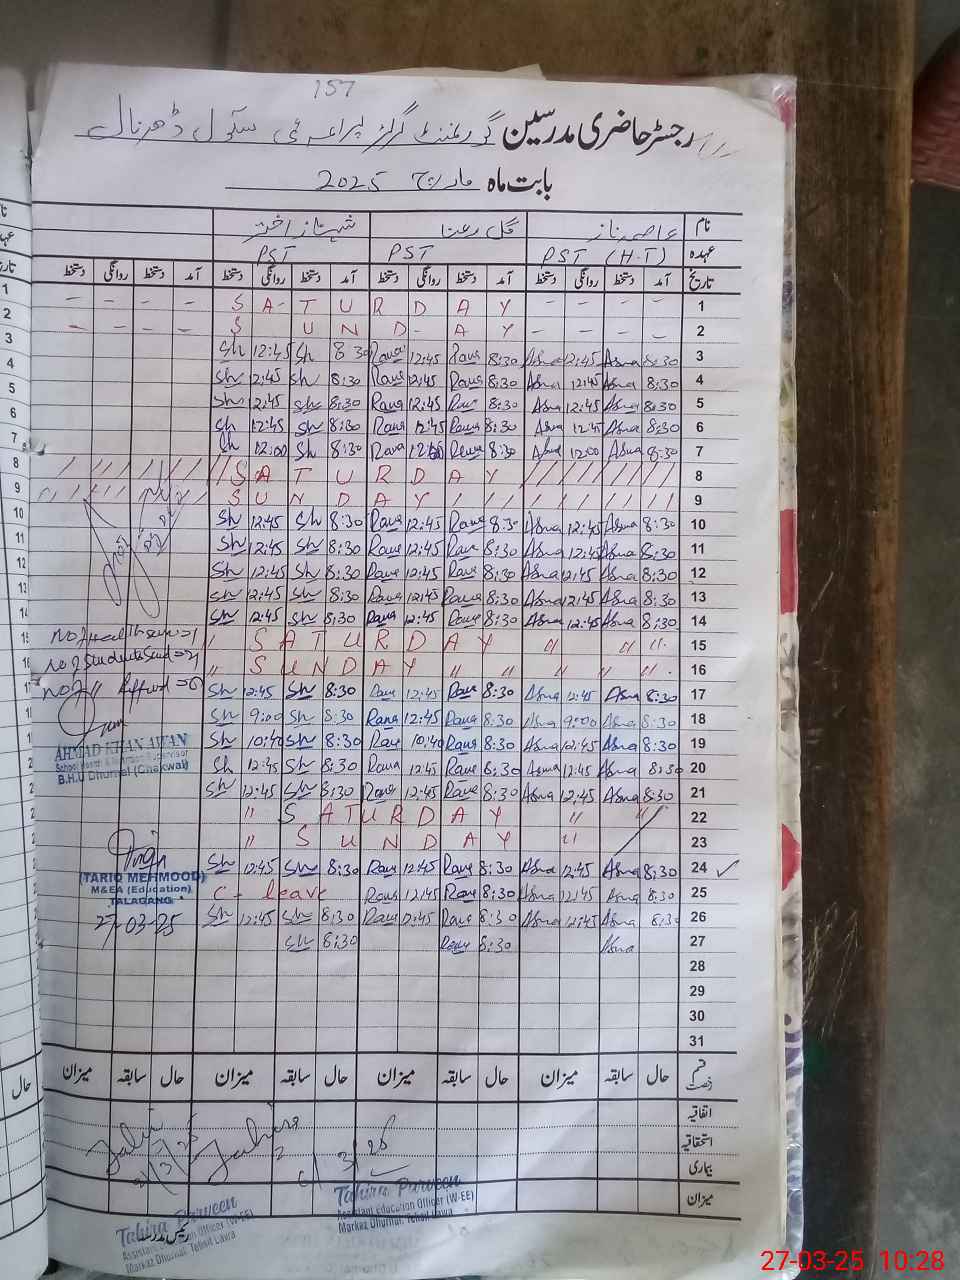 157
رجسٹر حاضری مدرسین گورنمنٹ گرلز پرائمری سکول ڈھرنال
بابت ماہ مارچ 2025
نام عاصمہ ناز گل رعنا شہناز اختر
عہدہ PST (H.T) PST PST
تاریخ آمد دستخط روانگی دستخط آمد دستخط روانگی دستخط آمد دستخط روانگی دستخط آمد دستخط روانگی دستخط
SATURDAY 1
SUNDAY 2
Sh 12:45 Sh 8:30 Rana 12:45 Rana 8:30 Asma 12:45 Asma 8:30 3
Sh 12:45 Sh 8:30 Rana 12:45 Rana 8:30 Asma 12:45 Asma 8:30 4
Sh 12:45 Sh 8:30 Rana 12:45 Rana 8:30 Asma 12:45 Asma 8:30 5
Sh 12:45 Sh 8:30 Rana 12:45 Rana 8:30 Asma 12:45 Asma 8:30 6
Sh 12:00 Sh 8:30 Rana 12:00 Rana 8:30 Asma 12:00 Asma 8:30 7
SATURDAY 8
SUNDAY 9
Sh 12:45 Sh 8:30 Rana 12:45 Rana 8:30 Asma 12:45 Asma 8:30 10
Sh 12:45 Sh 8:30 Rana 12:45 Rana 8:30 Asma 12:45 Asma 8:30 11
Sh 12:45 Sh 8:30 Rana 12:45 Rana 8:30 Asma 12:45 Asma 8:30 12
Sh 12:45 Sh 8:30 Rana 12:45 Rana 8:30 Asma 12:45 Asma 8:30 13
Sh 12:45 Sh 8:30 Rana 12:45 Rana 8:30 Asma 12:45 Asma 8:30 14
" SATURDAY " " " 15
" SUNDAY " " " " 16
Sh 12:45 Sh 8:30 Rana 12:45 Rana 8:30 Asma 12:45 Asma 8:30 17
Sh 9:00 Sh 8:30 Rana 12:45 Rana 8:30 Asma 9:00 Asma 8:30 18
Sh 10:40 Sh 8:30 Rana 10:40 Rana 8:30 Asma 12:45 Asma 8:30 19
Sh 12:45 Sh 8:30 Rana 12:45 Rana 8:30 Asma 12:45 Asma 8:30 20
Sh 12:45 Sh 8:30 Rana 12:45 Rana 8:30 Asma 12:45 Asma 8:30 21
" SATURDAY " " 22
" SUNDAY " 23
Sh 12:45 Sh 8:30 Rana 12:45 Rana 8:30 Asma 12:45 Asma 8:30 24 ✓
C - leave Rana 12:45 Rana 8:30 Asma 12:45 Asma 8:30 25
Sh 12:45 Sh 8:30 Rana 12:45 Rana 8:30 Asma 12:45 Asma 8:30 26
Sh 8:30 Rana 8:30 Asma 27
28
29
30
31
AHMAD KHAN AWAN
School Health & Nutrition Supervisor
B.H.U Dhurnal (Chakwal)
(TARIQ MEHMOOD)
M&EA (Education)
TALAGANG
27-03-25
قسم رخصت حال سابقہ میزان حال سابقہ میزان حال سابقہ میزان حال سابقہ میزان
اتفاقیہ
استحقاقیہ
بیماری
میزان
Tahira Parveen
Assistant Education Officer (W-EE)
Markaz Dhurnal, Tehsil Lawa
Tahira Parveen
Assistant Education Officer (W-EE)
Markaz Dhurnal, Tehsil Lawa
رئیس مدرسہ
27-03-25 10:28